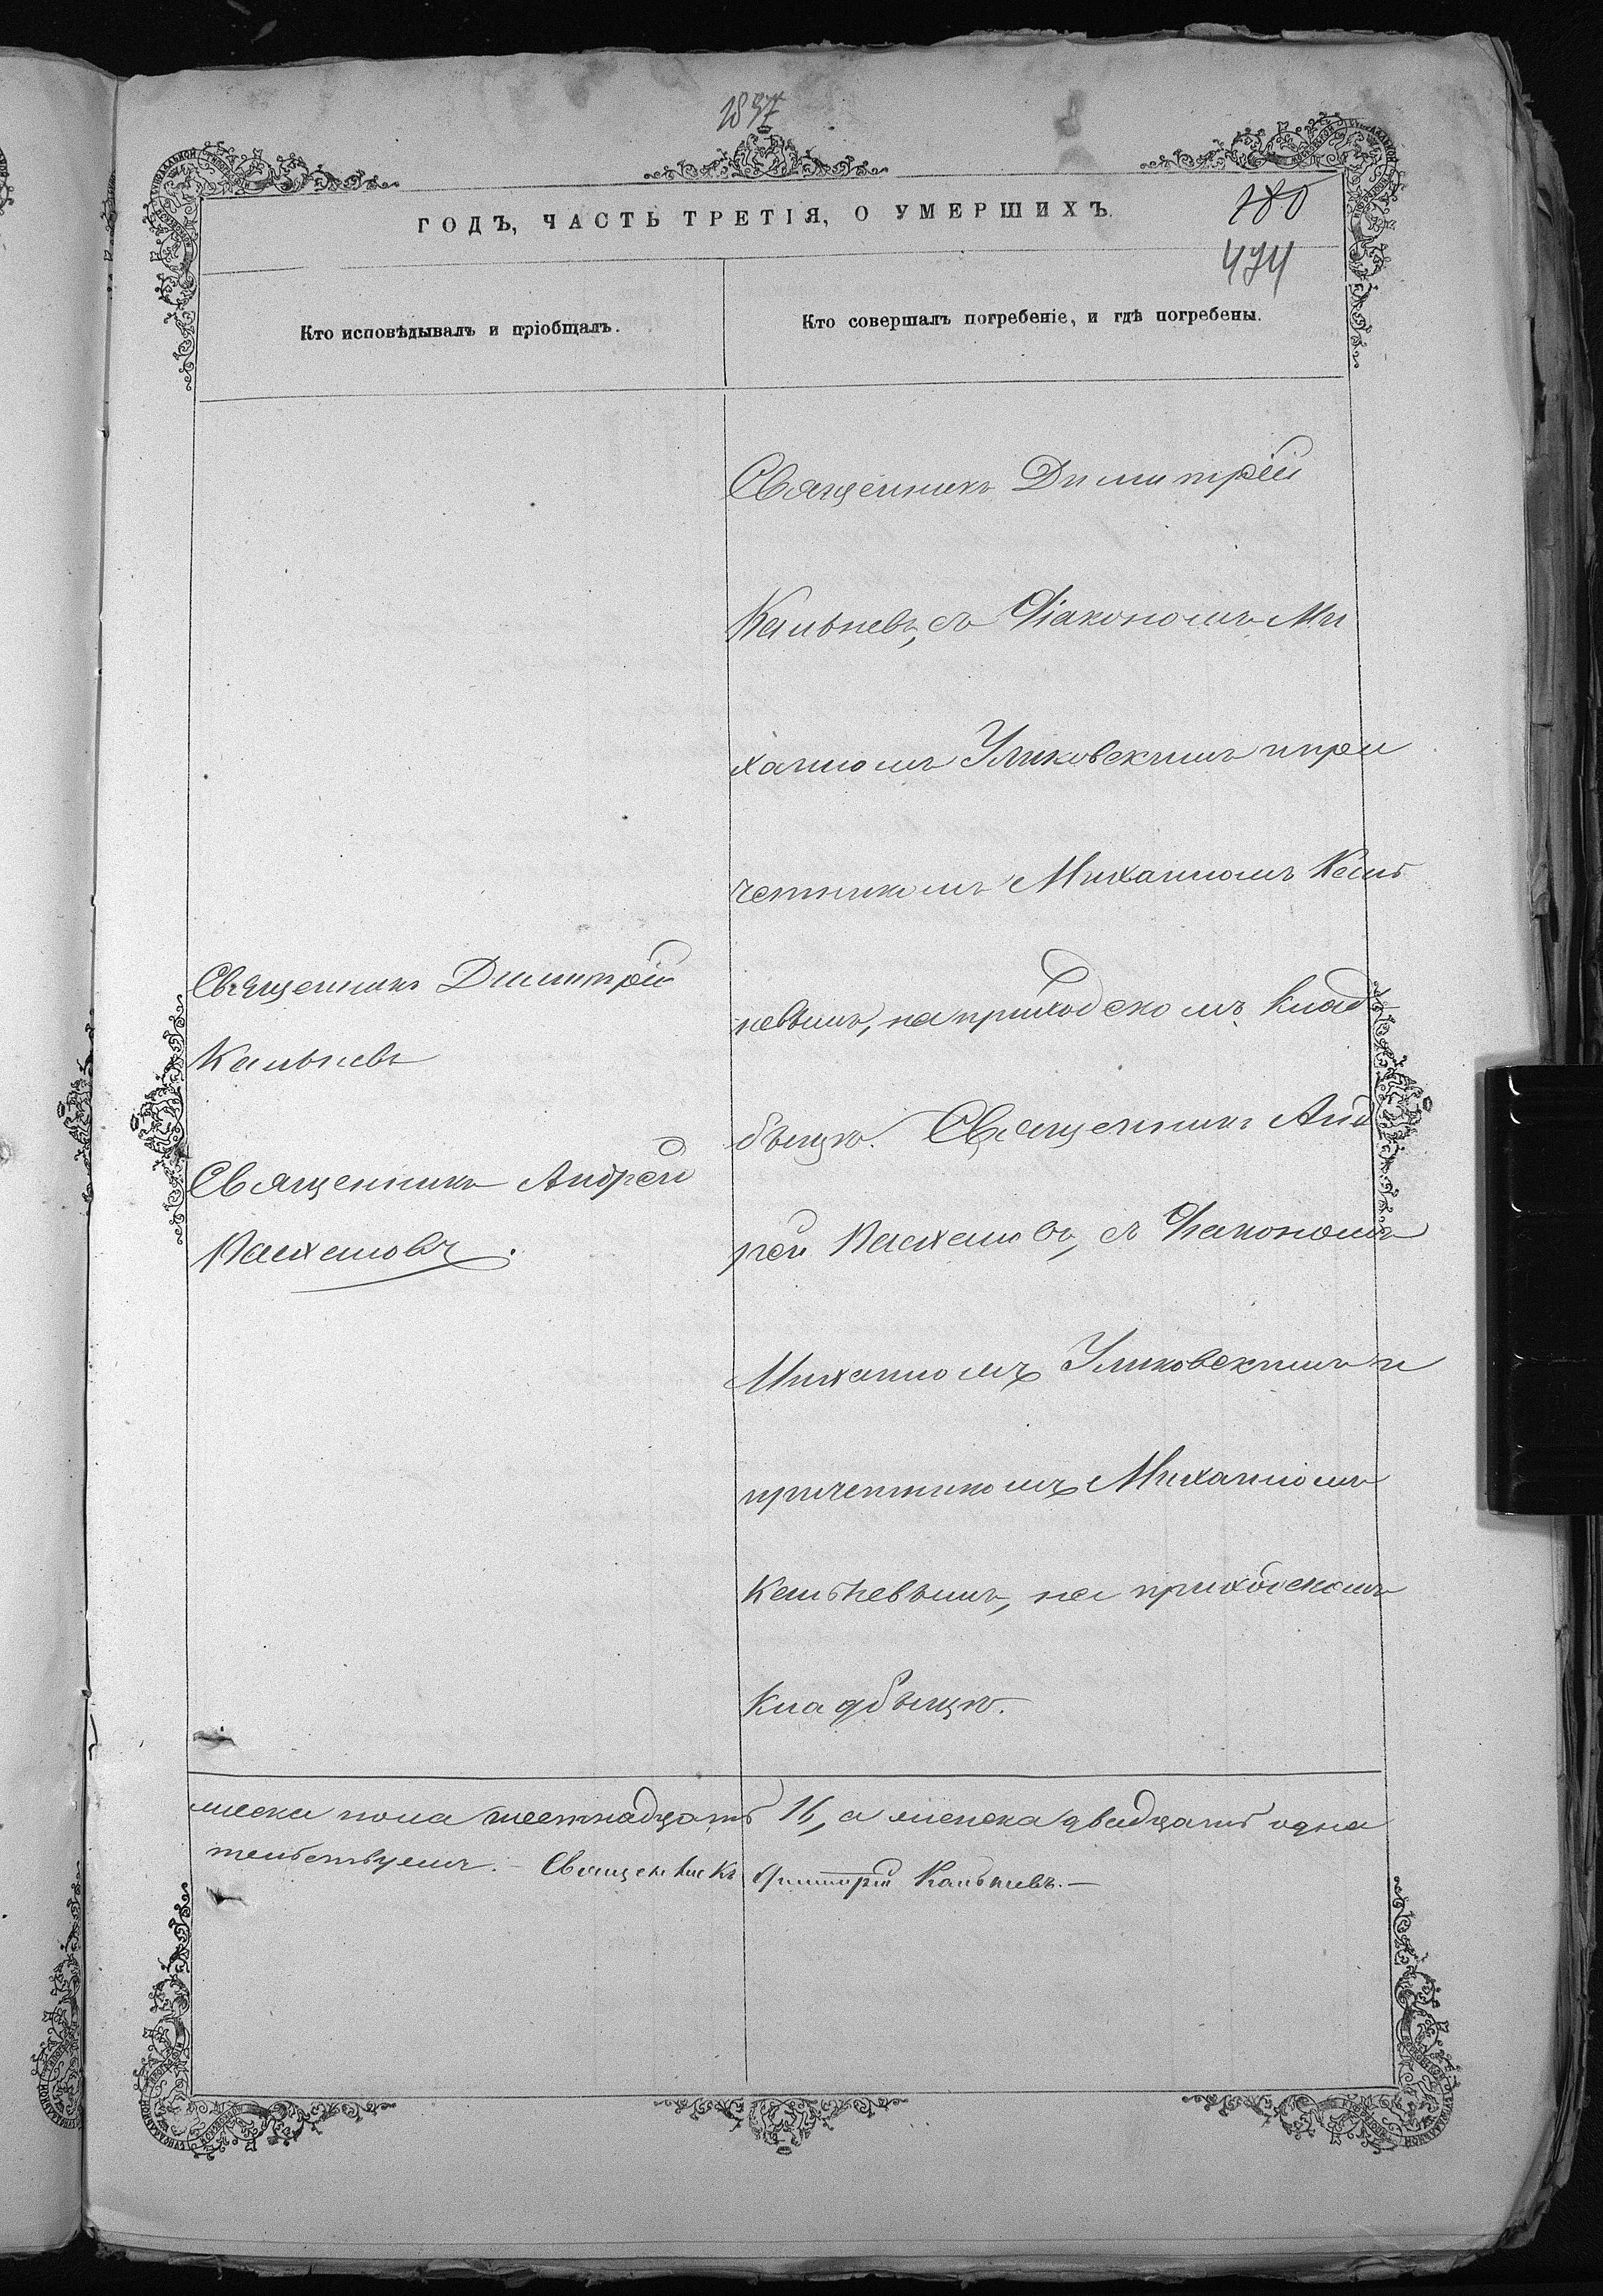 1897
ГОДЪ, ЧАСТЬ ТРЕТІЯ, О УМЕРШИХЪ.
474
Кто исповѣдывалъ и пріобщалъ.
Кто совершалъ погребеніе, и гдѣ погребены.
Священникъ Димитрій
Кальневъ
Священникъ Андрей
Священникъ Димитрій
Кальневъ, съ Діакономъ Ми
хаиломъ Уликовскимъ и при
четникомъ Михаиломъ Каль
невымъ, на приходскомъ клад
быщѣ. Священникъ Анд
рей съ Діакономъ
Михаиломъ Уликовскимъ и
причетникомъ Михаиломъ
Кальневымъ, на приходскомъ
кладбыщѣ.
жеска пола шестнадцать 16, а женска двадцать одна
тельствуемъ. – Священникъ Димитрій Кальневъ. –